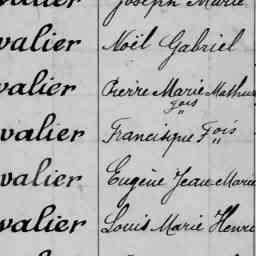 Joseph Marie
valier Noël Gabriel
valier Pierre Marie Mathu
Fois
valier Francisque Fois
valier Eugène Jean Marie
valier Louis Marie Henri